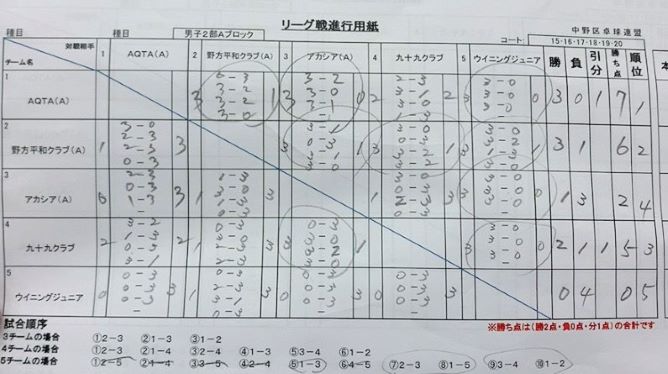 リーグ戦進行用紙
種目 種目 男子2部Aブロック 中野区卓球連盟
コート: 15・16・17・18・19・20
対戦相手 1 AQTA(A) 2 野方平和クラブ(A) 3 アカシア(A) 4 九十九クラブ 5 ウイニングジュニア 勝 負 引分 勝ち点 順位
チーム名
1
AQTA(A) 3 3-2 3-2 3-0 1 3 3-2 3-0 3-1 0 2 2-3 3-1 3-0 1-3 2 3 3-0 3-0 3-0 0 3 0 1 7 1
2
野方平和クラブ(A) 1 2-3 2-3 0-3 3 3 3-1 0-3 3-1 3-0 1 3 3-0 3-2 3-1 3 3-0 3-2 1-3 3-0 1 3 1 6 2
3
アカシア(A) 0 2-3 0-3 1-3 3 1 1-3 3-0 1-3 0-3 3 1 2-3 0-3 3 3 3-0 3-0 3-0 0 1 3 2 4
4
九十九クラブ 2 3-2 1-3 0-3 3-1 2 1 0-3 2-3 3 3 0-3 3-0 3-2 3-0 1 3 3-0 3-0 3-0 0 2 1 1 5 3
5
ウイニングジュニア 0 0-3 0-3 0-3 3 1 0-3 2-3 3-1 0-3 3 0 0-3 0-3 0-3 3 0 0-3 0-3 0-3 3 0 4 0 5
※勝ち点は(勝2点・負0点・分1点)の合計です
試合順序
3チームの場合 ①2-3 ②1-3 ③1-2
4チームの場合 ①2-3 ②1-4 ③2-4 ④1-3 ⑤3-4 ⑥1-2
5チームの場合 ①2-5 ②1-4 ③3-5 ④2-4 ⑤1-3 ⑥4-5 ⑦2-3 ⑧1-5 ⑨3-4 ⑩1-2